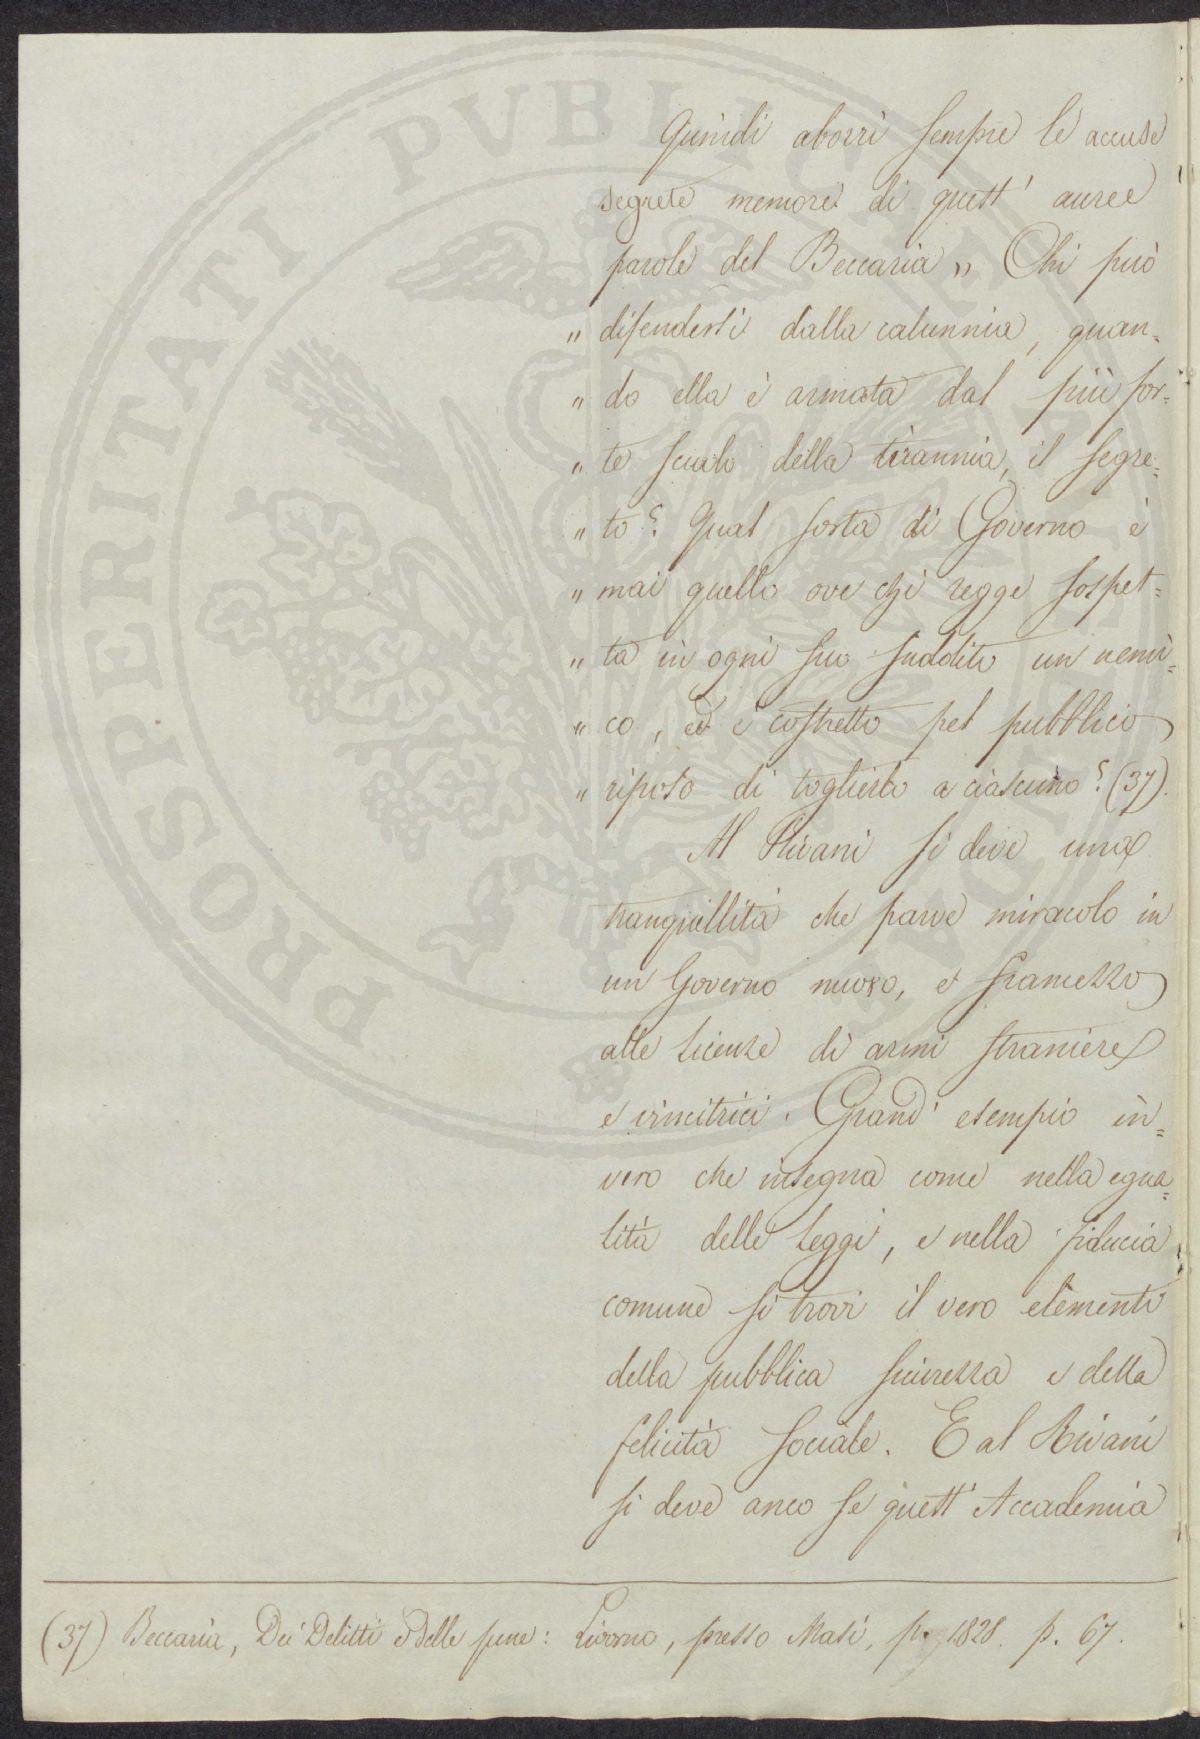 Quindi aborrì sempre le accuse
segrete memore di quell' auree
parole del Beccaria „ Chi può
„ difendersi dalla calunnia, quan=
„ do ella è armata dal più for=
„ te scudo della tirannia, il segre=
„ to? Qual sorta di Governo è
„ mai quello ove chi regge sospet=
„ ta in ogni suo suddito un nemi=
„ co, ed è costretto pel pubblico
„ riposo di toglierlo a ciascuno? (37).
Al Rivani si deve una
tranquillità che parve miracolo in
un Governo nuovo, e framezzo
alle licenze di armi straniere
e vincitrici. Grand' esempio in=
vero che insegna come nella egua=
lità delle Leggi, e nella fiducia
comune si trovi il vero elemento
della pubblica sicurezza e della
felicità sociale. E al Rivani
si deve anco se quest' Accademia
(37) Beccaria, Dei Delitti e delle pene: Livorno, presso Masi, 1828. p. 67.
PROSPERITATI PUBLICAE